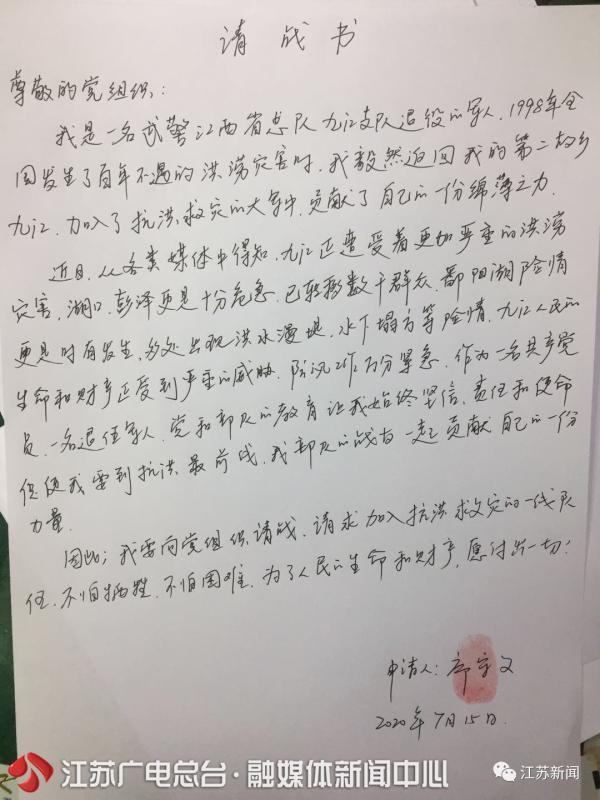 请战书
尊敬的党组织：
我是一名武警江西省总队九江支队退役的军人，1998年全
国发生了百年不遇的洪涝灾害时，我毅然返回我的第二故乡
九江，加入了抗洪救灾的大军中，贡献了自己的一份绵薄之力。
近日，从各类媒体中得知，九江正遭受着更加严重的洪涝
灾害，湖口、彭泽更是十分危急，已转移数千群众，鄱阳湖险情
更是时有发生，多处出现洪水漫堤，水下塌方等险情，九江人民的
生命和财产正受到严重的威胁，防汛工作万分紧急。作为一名共产党
员、一名退伍军人，党和部队的教育让我始终坚信，责任和使命
促使我要到抗洪最前线，我部队的战友一起贡献自己的一份
力量。
因此，我要向党组织请战，请求加入抗洪救灾的一线队
伍，不怕牺牲，不怕困难，为了人民的生命和财产，愿付出一切！
申请人：守文
2020年7月15日
江苏广电总台·融媒体新闻中心
江苏新闻